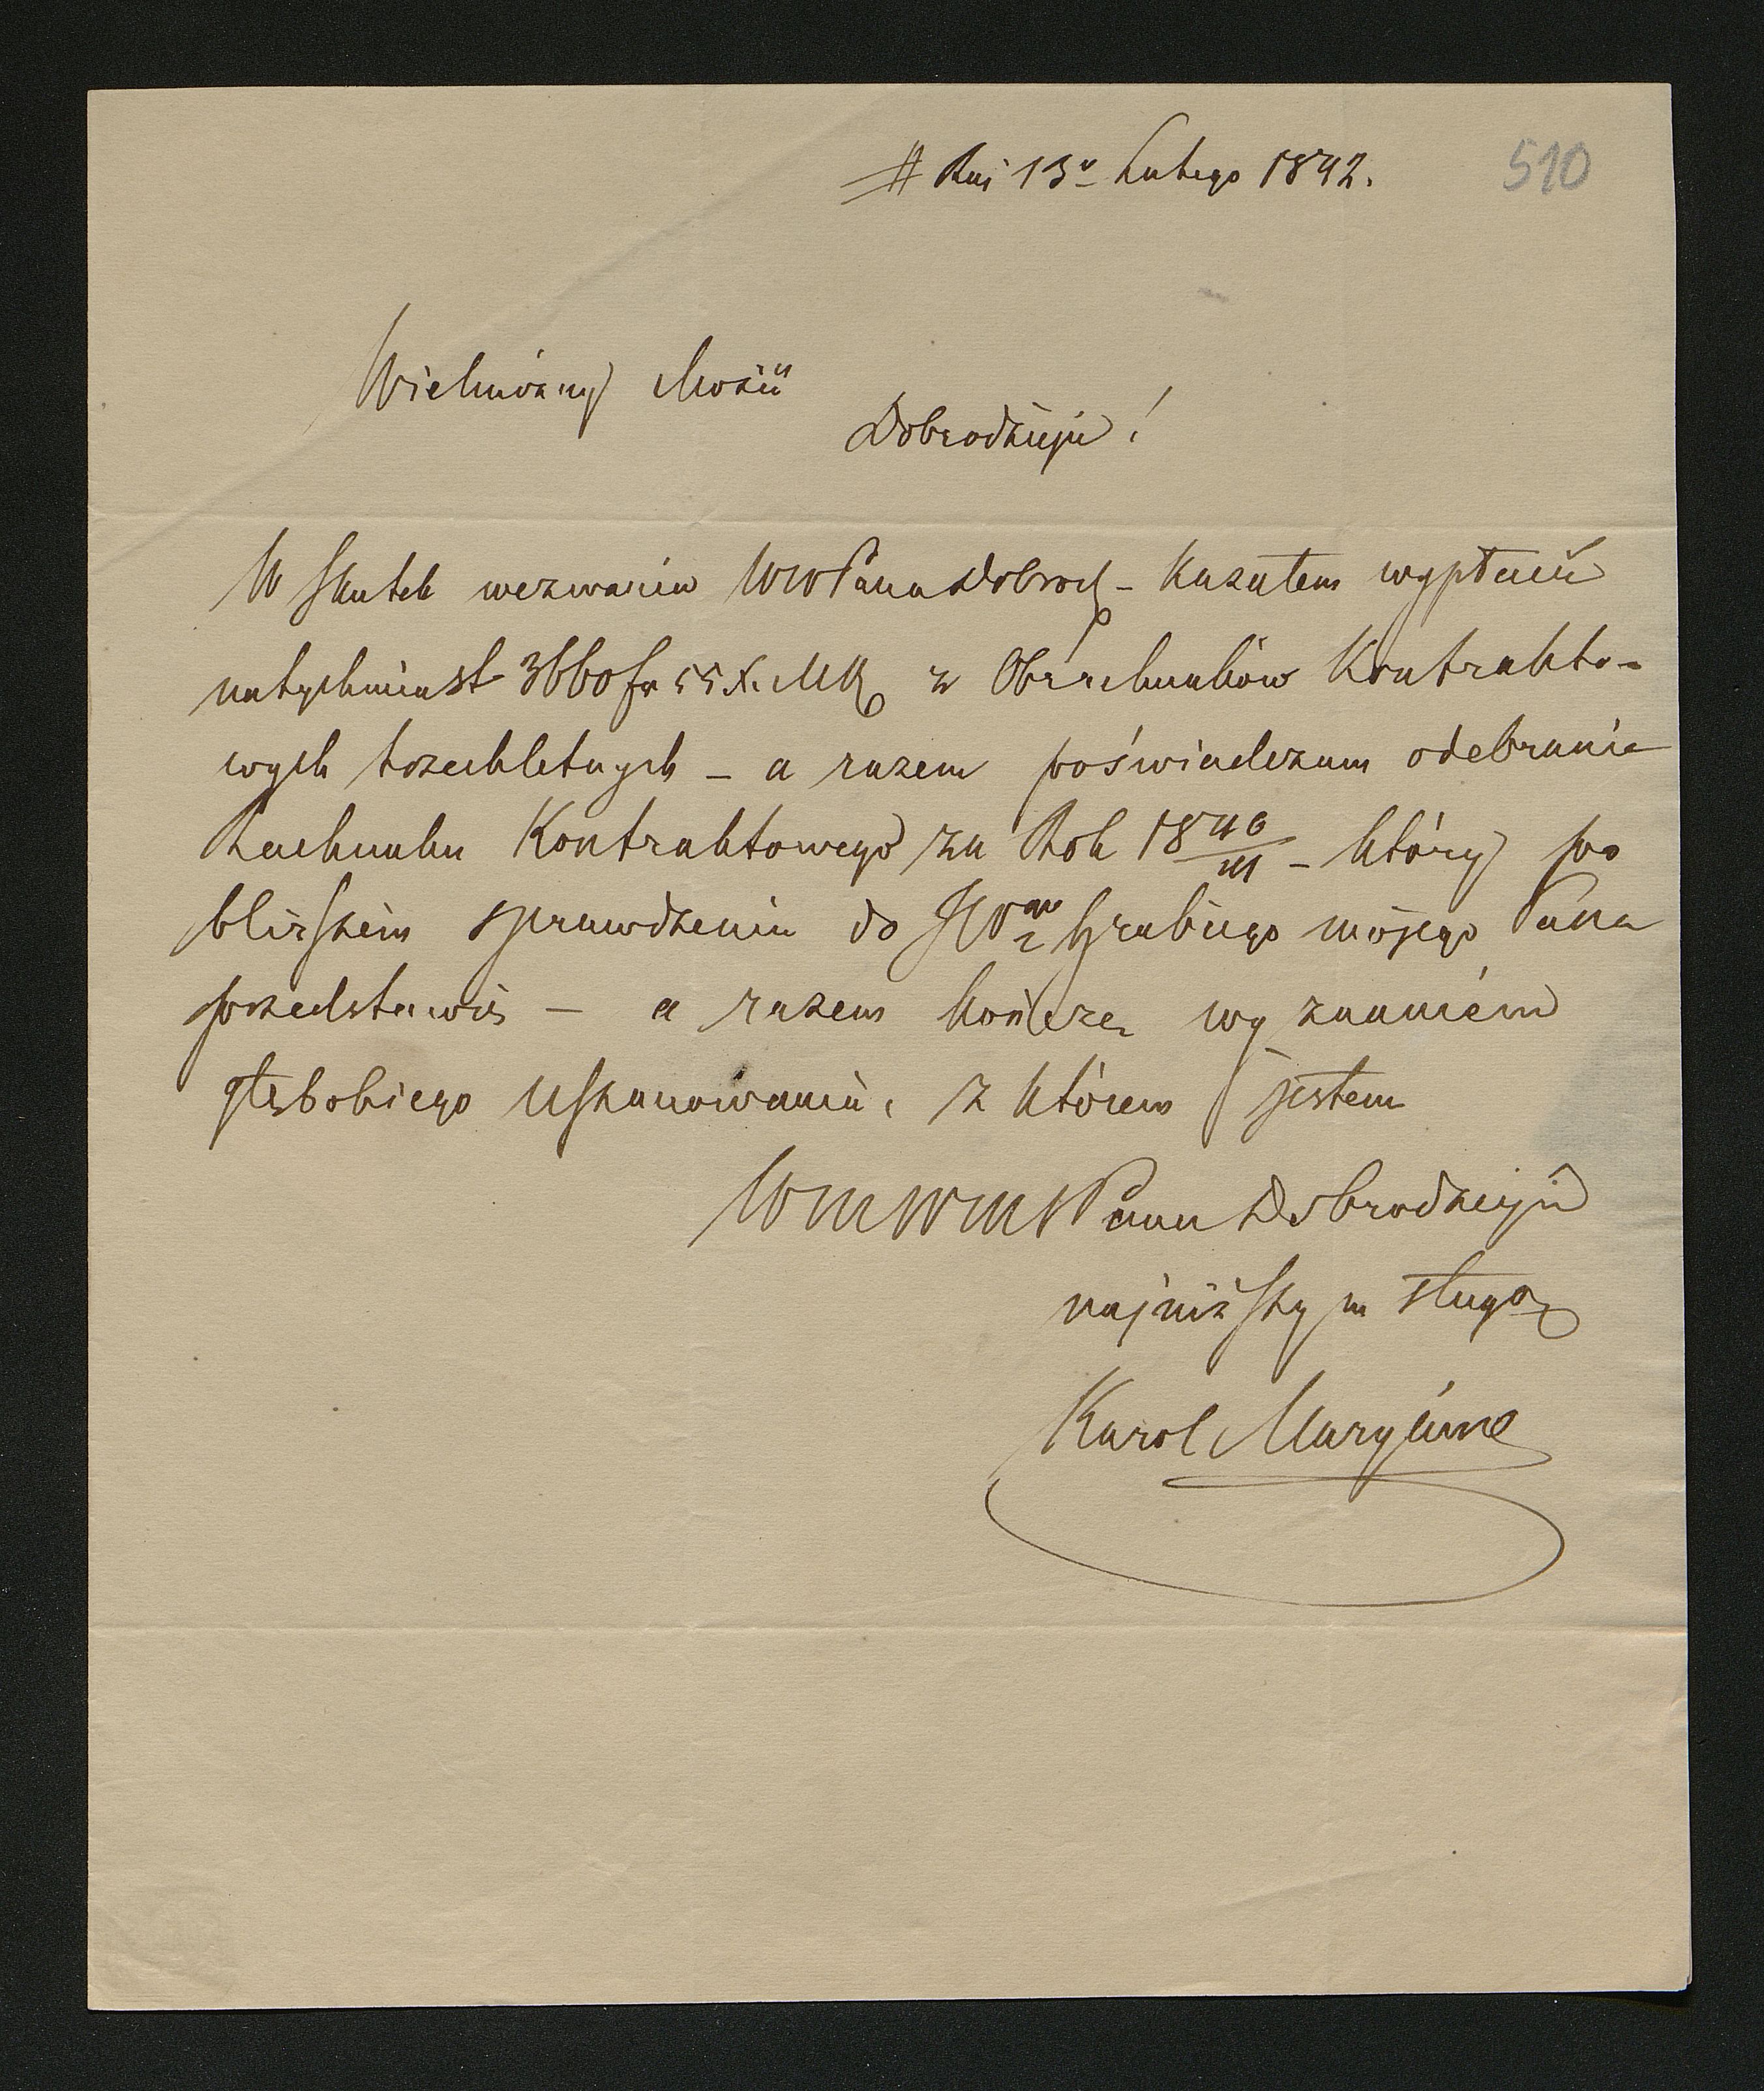 dnia 13º Lutego 1842. 510
Wielmożny Mości
Dobrodzieju!
W skutek wezwania WWPana Dobrod. – Kazałem wypłacić
natychmiast 3660 fr 55 x. MK z Obrachunków Kontrakto-
wych trzechletnych – a razem poświadczam odebranie
Rachunku Kontraktowego za Rok 1840/41 – który po
bliższem sprawdzeniu do JW Hrabiego mojego Pana
przedstawię – a razem kończę wyznaniem
głębokiego Uszanowania, z którem jestem
WMWMPana Dobrodzieja
najniższym sługą
Karol